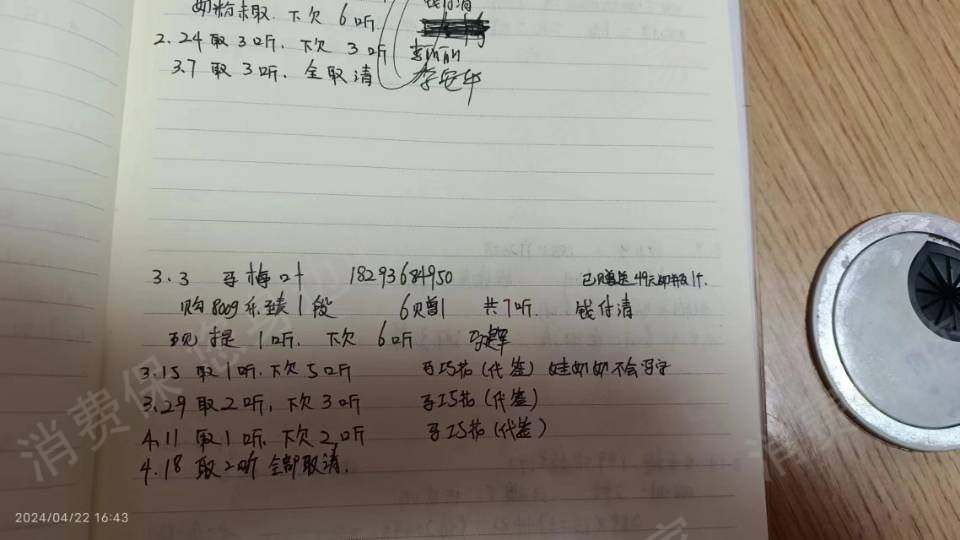 奶粉未取. 下欠 6 听 钱付清
2.24 取 3 听. 下欠 3 听
3.7 取 3 听. 全取清
3.3 马梅叶 18293684950 已贝曾送 49元
购 800g 1 段 6贝曾1 共7听. 钱付清
现提 1 听. 下欠 6 听
3.15 取1听. 下欠 5 听 马巧花(代签) 娃奶奶不会写字
3.29 取 2 听, 下欠 3 听 马巧花(代签)
4.11 取 1 听. 下欠 2 听 马巧花(代签)
4.18 取 2 听 全部取清.
消费保
2024/04/22 16:43